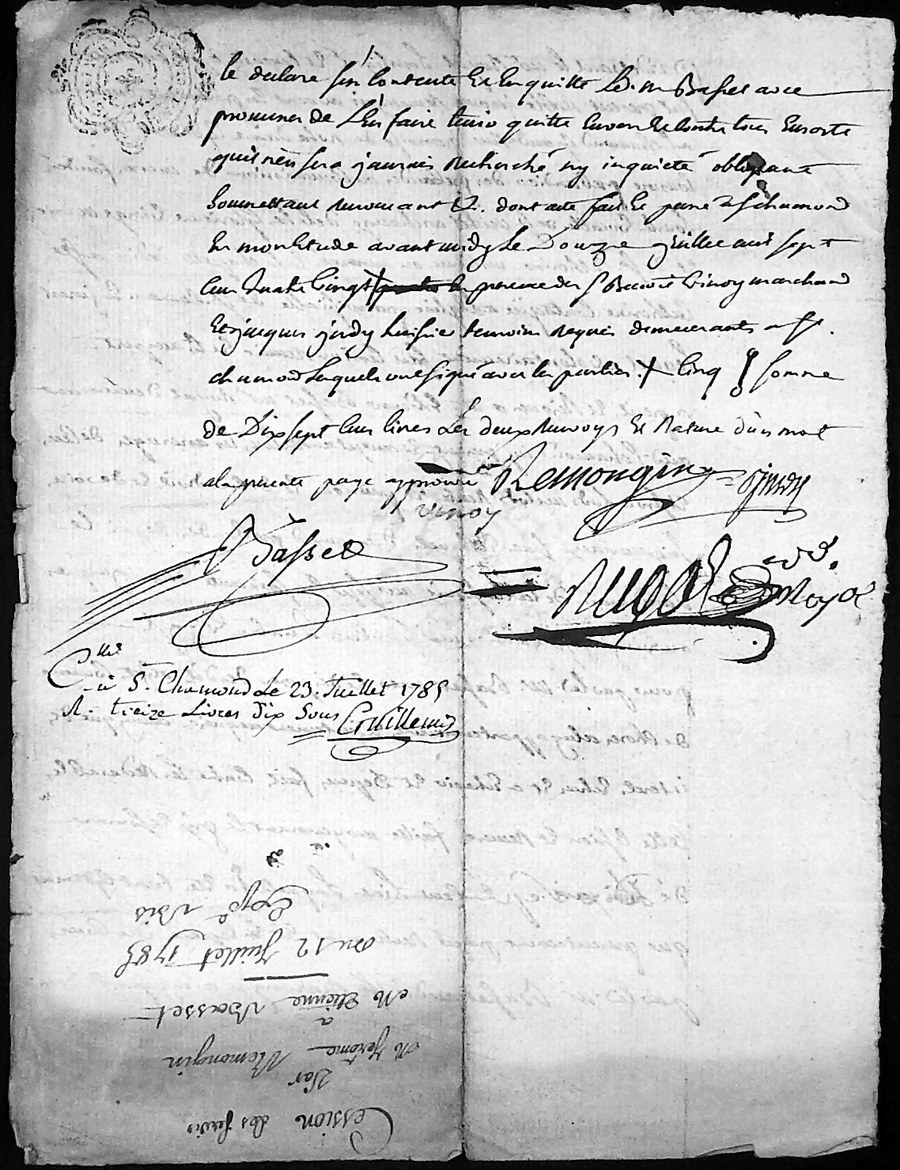 se declare Contente et en quitte led. sr Basset avec
promesse de l'en faire tenir quitte envers et contre tous en sorte
qu'il n'en sera jamais recherché ny inquieté obligeant
soumettant renoncant &. dont acte fait et passé a St chamond
en mon Etude avant midy Le Douze juillet mil sept
cent quatre vingt + en presence des Sr vinoy marchand
et jacques jurdy huissier temoins requis demeurants a St.
chamond lesquels ont signé avec les parties. + cinq somme
de Dix sept cent livres Les deux renvoys et rature d'un mot
a la presente page approuvé Remongin jurdy
vinoy
Basset
no.re
C.lé
à St. Chamond Le 23. Juillet 1785
R. treize Livres dix Sous
Cession des
Par
M Jerome Remongin
à
M Etienne Basset
Du 12 Juillet 1785
Exp.é